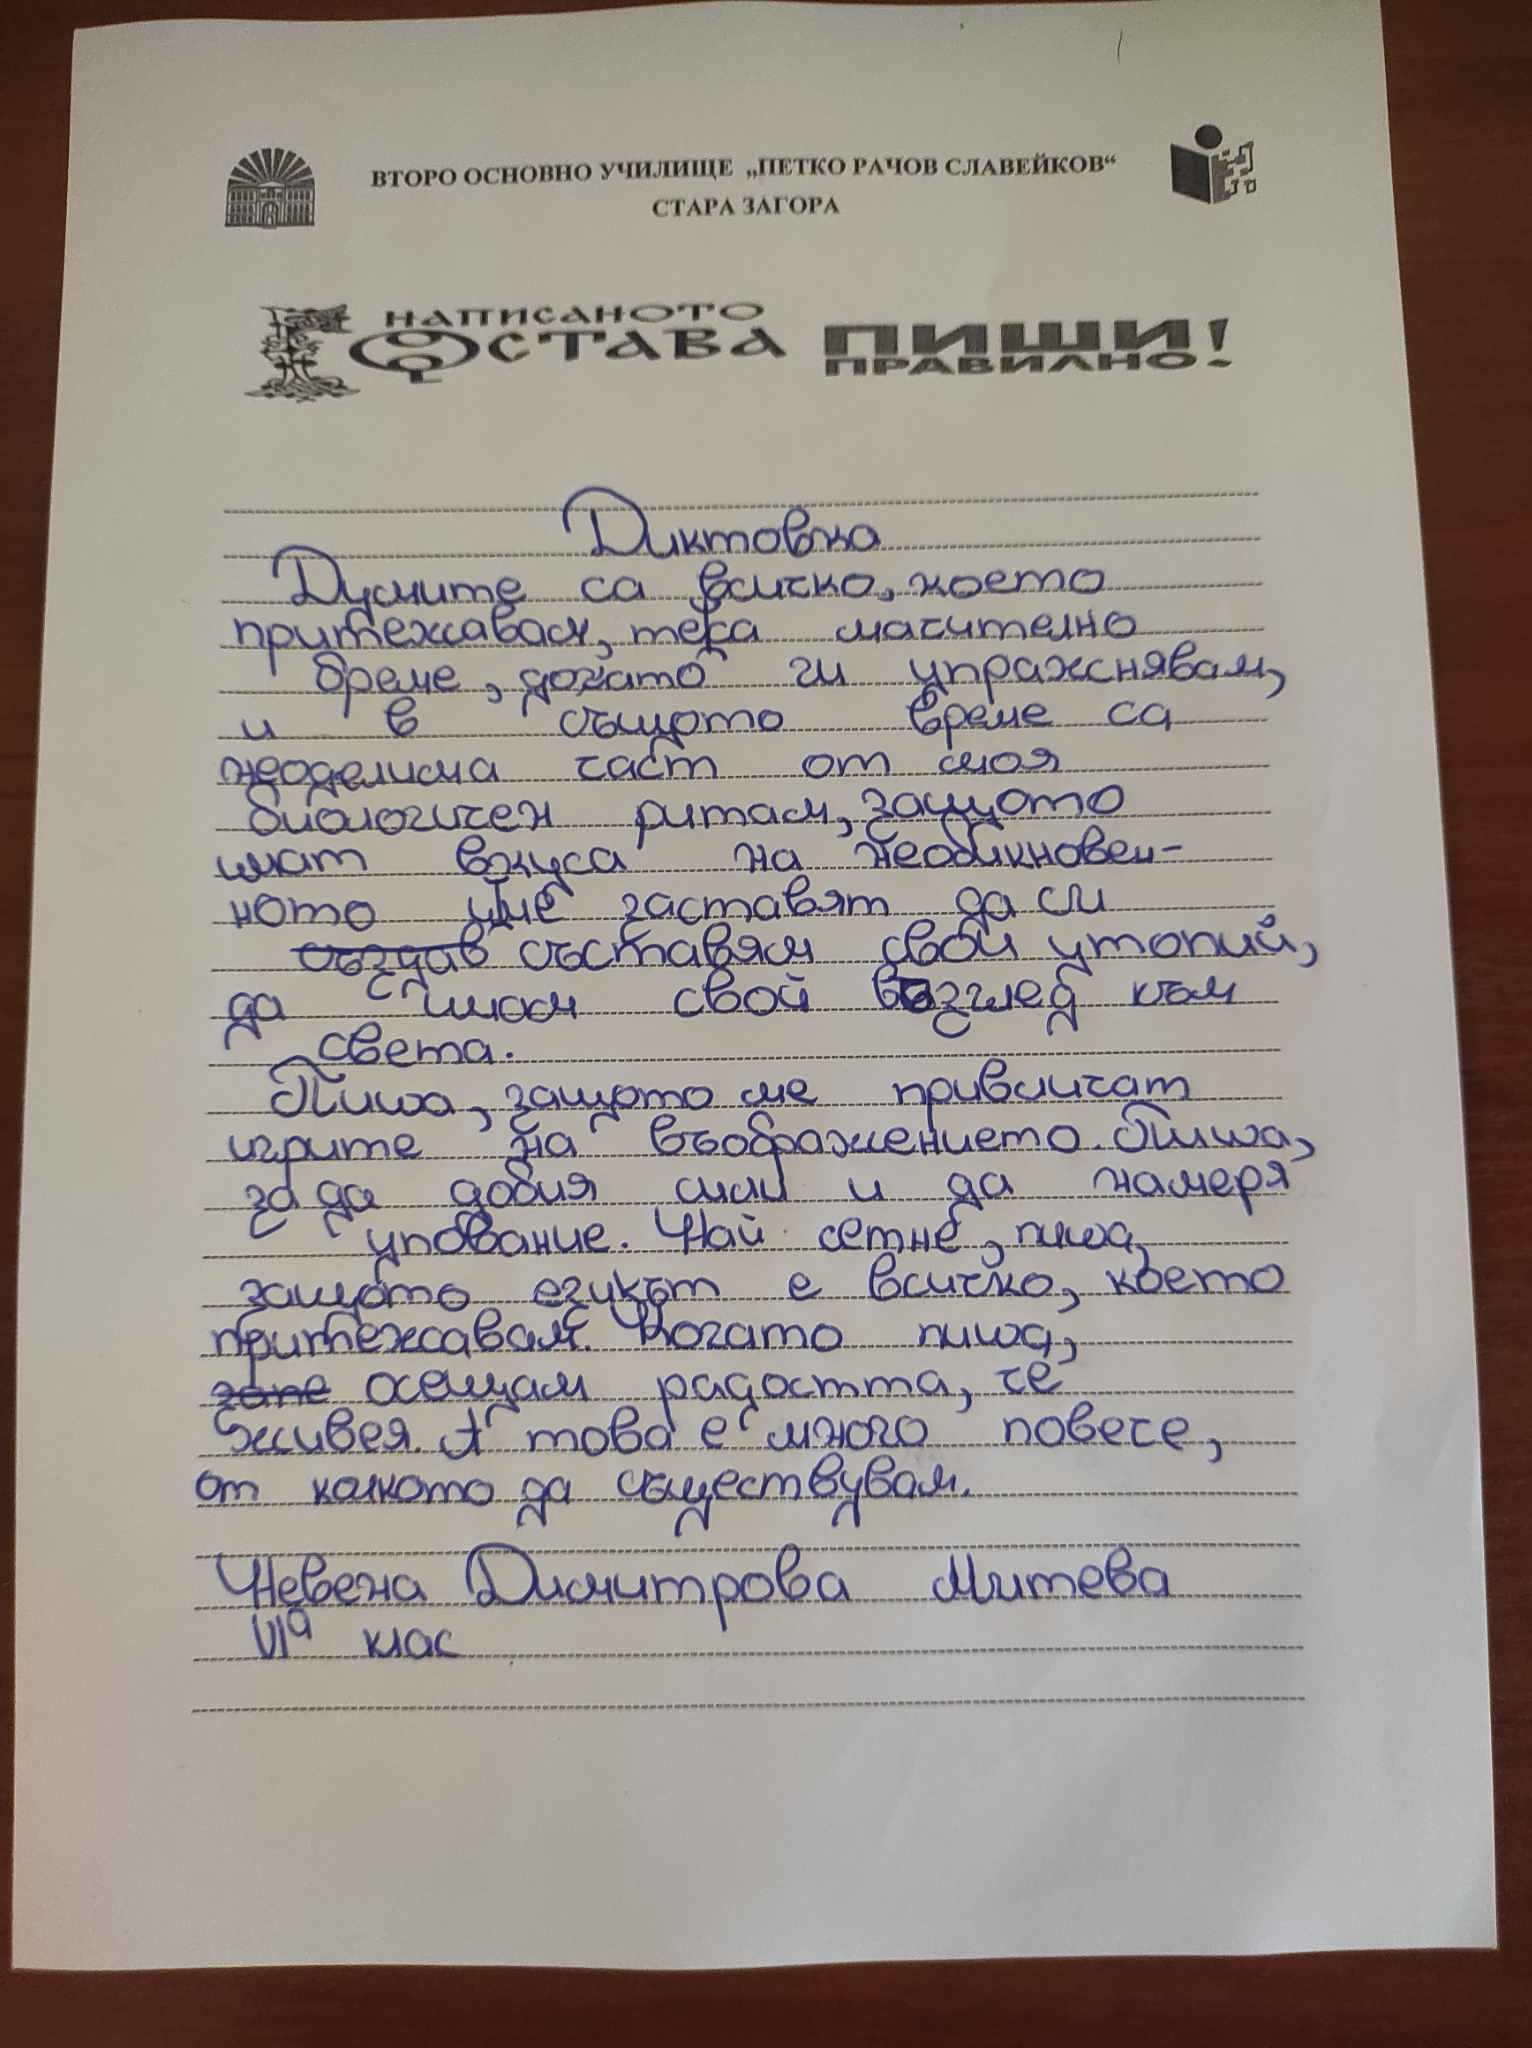 ВТОРО ОСНОВНО УЧИЛИЩЕ „ПЕТКО РАЧОВ СЛАВЕЙКОВ“
СТАРА ЗАГОРА
НАПИСАНОТО
ОСТАВА ПИШИ
ПРАВИЛНО!
Диктовка
Думите са всичко, което
притежавам, тека мачително
време, докато ги упражснявам,
и в същото време са
неоделима част от моя
биологичен ритам, защото
имат вкуса на необикновен-
ното и ме заставят да си
създав съставям свой утопий,
да имам свой възглед към
света.
Пиша, защото ме привличат
игрите на въображението. Пиша,
за да добия сили и да намеря
упование. Най сетне, пиша,
защото езикът е всичко, което
притежавам. Когато пиша,
запе осещам радостта, че
живея. А това е много повече,
от колкото да съществувам.
Невена Димитрова Митева
VIа клас